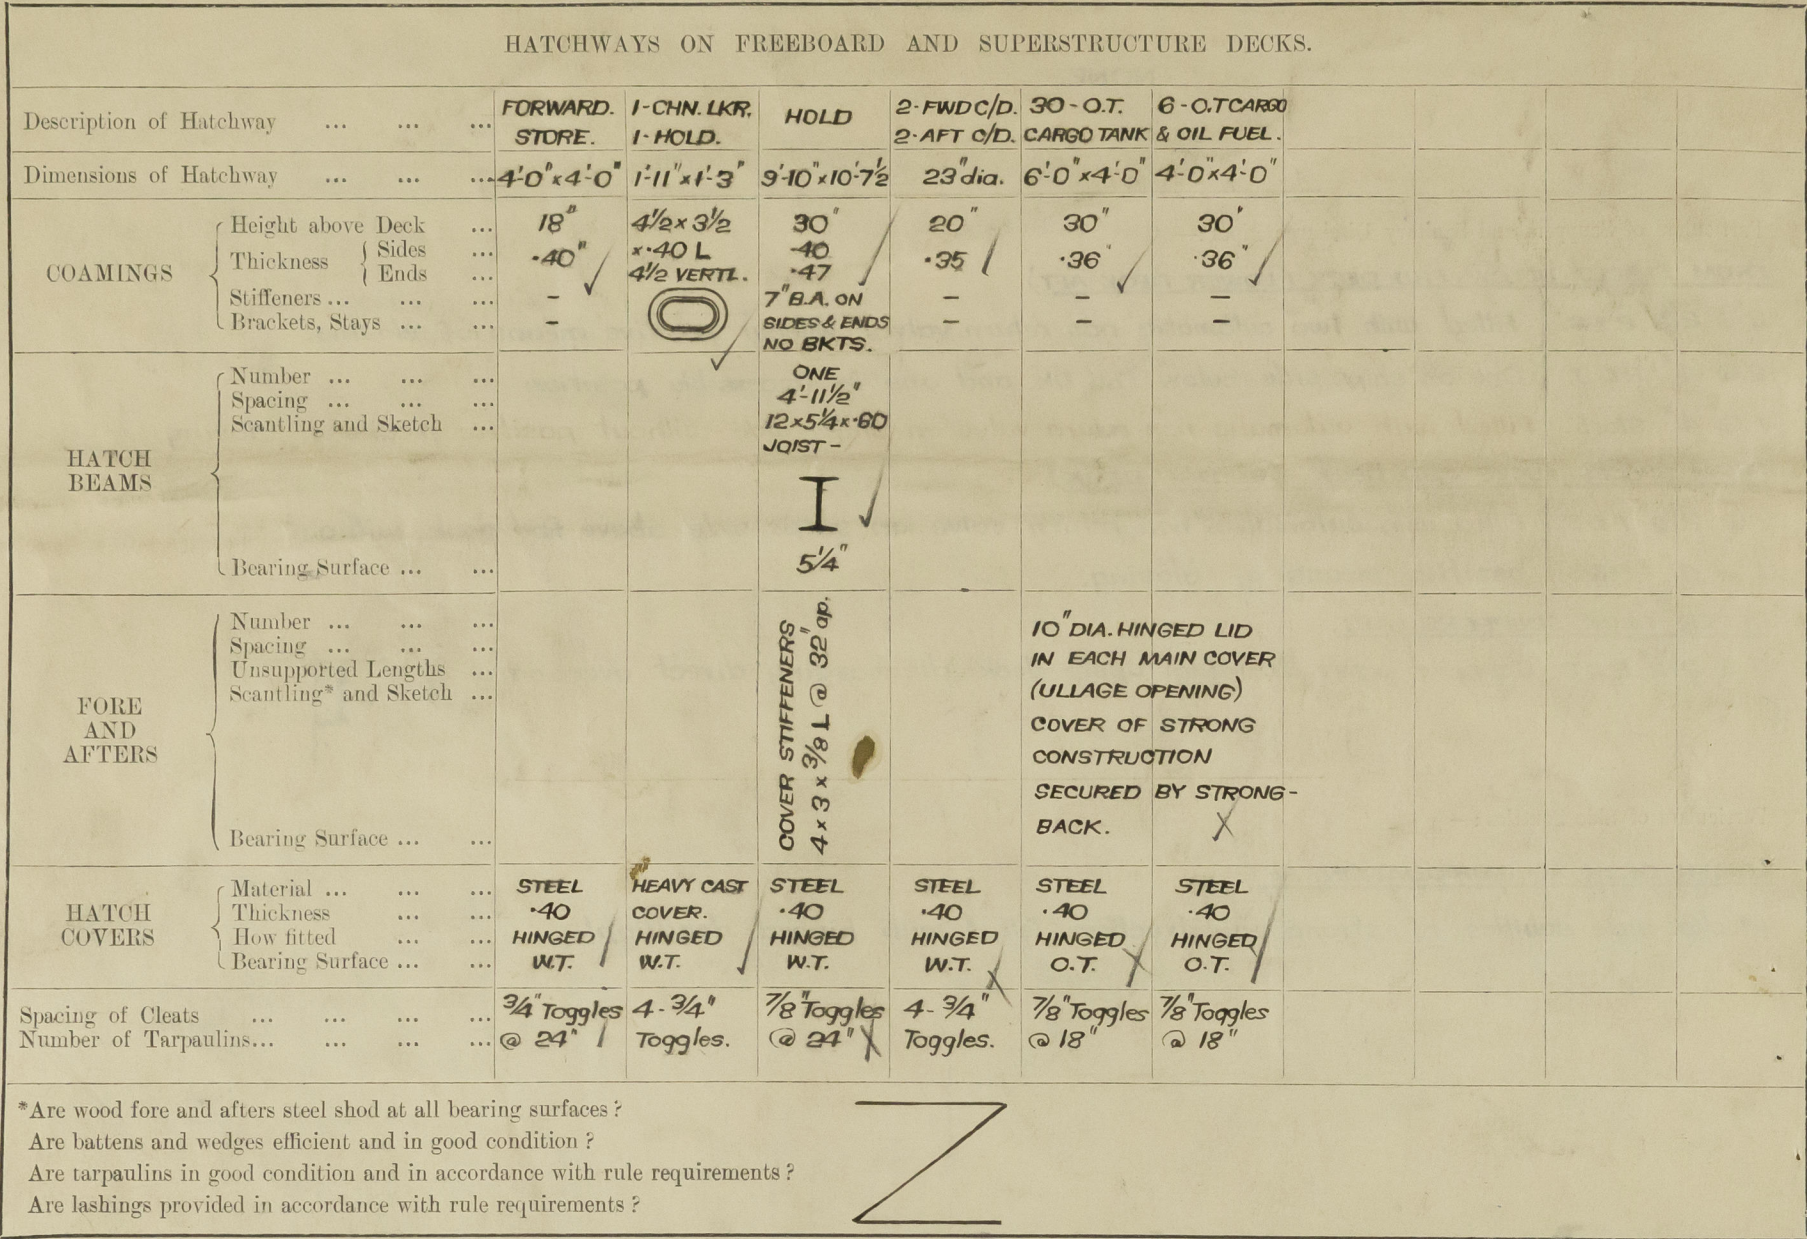 HATCHWAYS ON FREEBOARD AND SUPERSTRUCTURE DECKS.
Description of Hatchway ... ... ... FORWARD. STORE. 1-CHN. LKR. 1-HOLD. HOLD 2-FWD C/D. 2-AFT C/D. 30-O.T. CARGO TANK 6-O.T CARGO & OIL FUEL.
Dimensions of Hatchway ... ... ... 4'-0"x4'-0" 1'-11"x1'-3" 9'-10"x10'-7½ 23" dia. 6'-0"x4'-0" 4'-0"x4'-0"
COAMINGS
Height above Deck ... 18" 4½x3½ 30" 20" 30" 30"
Thickness { Sides ... ·40" x·40 L ·40 ·35 ·36" ·36"
{ Ends ... 4½ VERTL. ·47
Stiffeners ... ... ... – 7" B.A. ON – – –
Brackets, Stays ... ... – SIDES & ENDS – – –
NO BKTS.
HATCH BEAMS
Number ... ... ... ONE
Spacing ... ... ... 4'-11½"
Scantling and Sketch ... 12x5¼x·60
JOIST –
Bearing Surface ... ... 5¼"
FORE AND AFTERS
Number ... ... ...
Spacing ... ... ...
Unsupported Lengths ...
Scantling* and Sketch ...
Bearing Surface ... ...
COVER STIFFENERS
4 x 3 x 3/8 L @ 32" ap.
10" DIA. HINGED LID
IN EACH MAIN COVER
(ULLAGE OPENING)
COVER OF STRONG
CONSTRUCTION
SECURED BY STRONG-
BACK.
HATCH COVERS
Material ... ... ... STEEL HEAVY CAST STEEL STEEL STEEL STEEL
Thickness ... ... ·40 COVER. ·40 ·40 ·40 ·40
How fitted ... ... HINGED HINGED HINGED HINGED HINGED HINGED
Bearing Surface ... ... W.T. W.T. W.T. W.T. O.T. O.T.
Spacing of Cleats ... ... ... ... ¾" Toggles 4-¾" 7/8" Toggles 4-¾" 7/8" Toggles 7/8" Toggles
Number of Tarpaulins... ... ... ... @ 24" Toggles. @ 24" Toggles. @ 18" @ 18"
*Are wood fore and afters steel shod at all bearing surfaces ?
Are battens and wedges efficient and in good condition ?
Are tarpaulins in good condition and in accordance with rule requirements ?
Are lashings provided in accordance with rule requirements ?